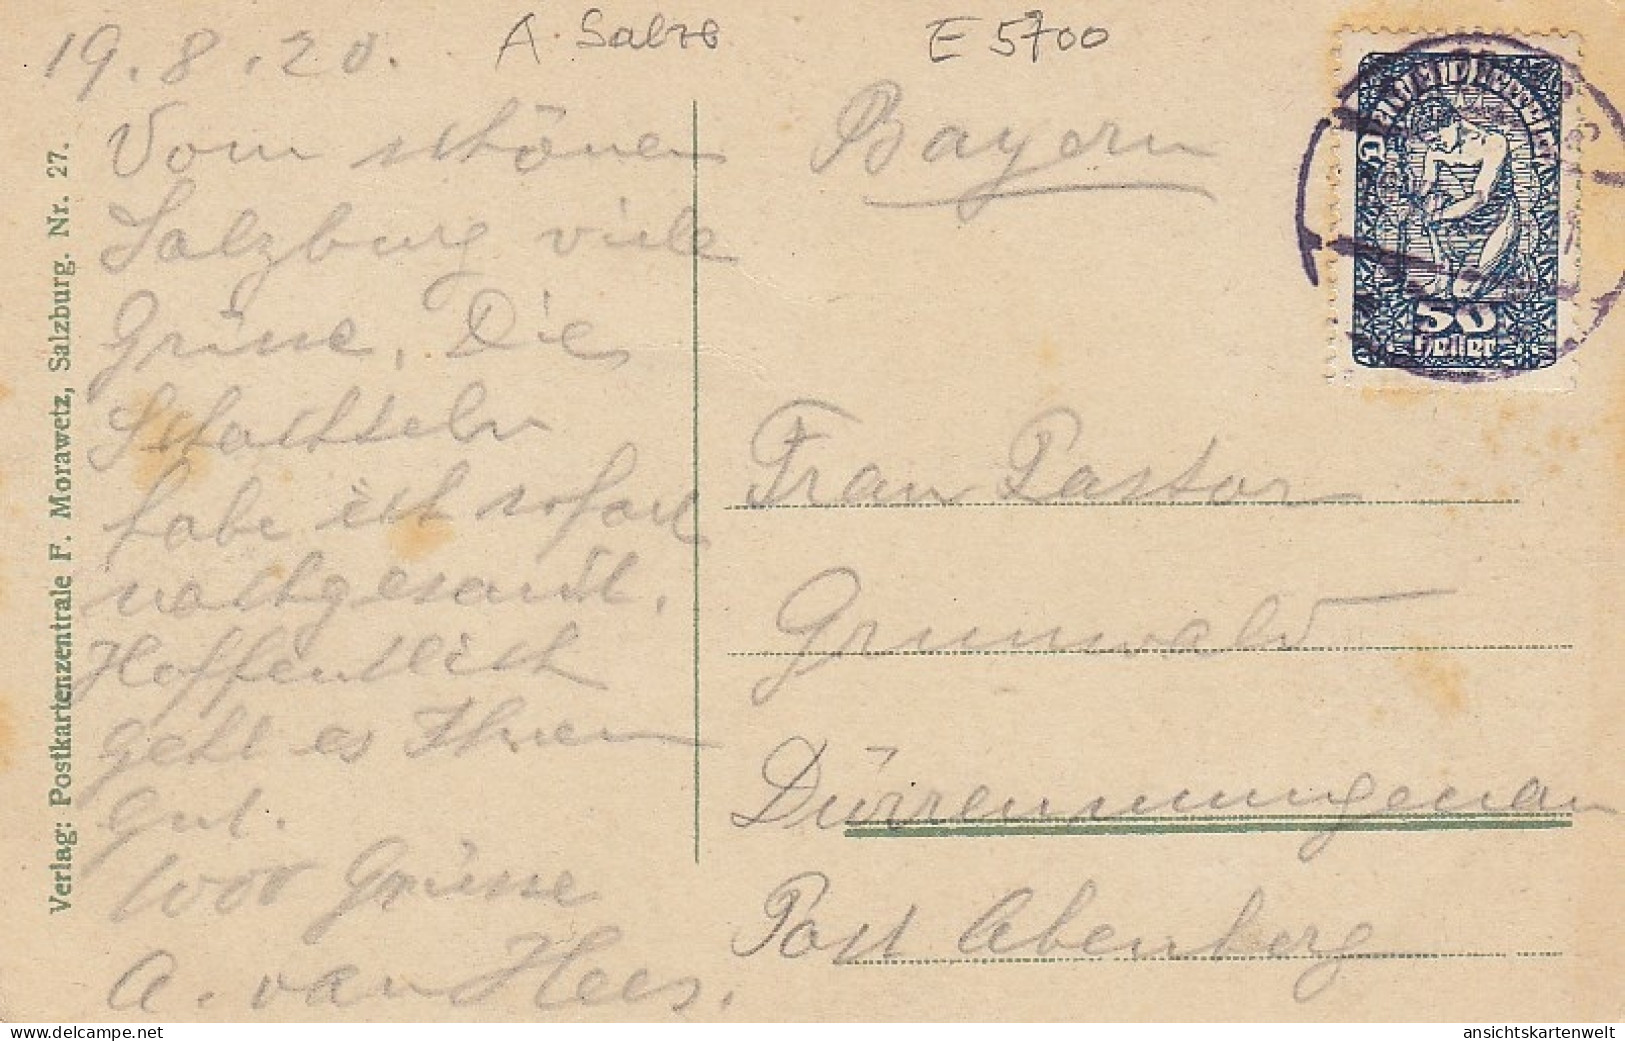 A. Salzb
E 5700
19.8.20.
Vom schönen
Salzburg viele
Grüsse. Die
Schachteln
habe ich sofort
nachgesandt.
Hoffentlich
geht es Ihnen
gut.
1000 Grüsse
A. van Hees.
Bayern
Frau Pastor
Grunwald
Dürrenmungenau
Post Abenberg
Verlag: Postkartenzentrale F. Morawetz, Salzburg. Nr. 27.
50
Heller
ansichtskartenwelt
delcampe.net